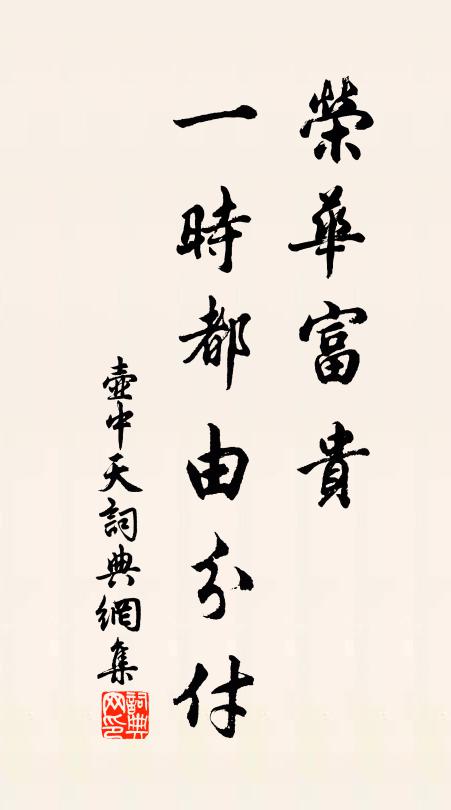 榮華富貴
一時都由分付
壺中天詞典網集
詞典网印